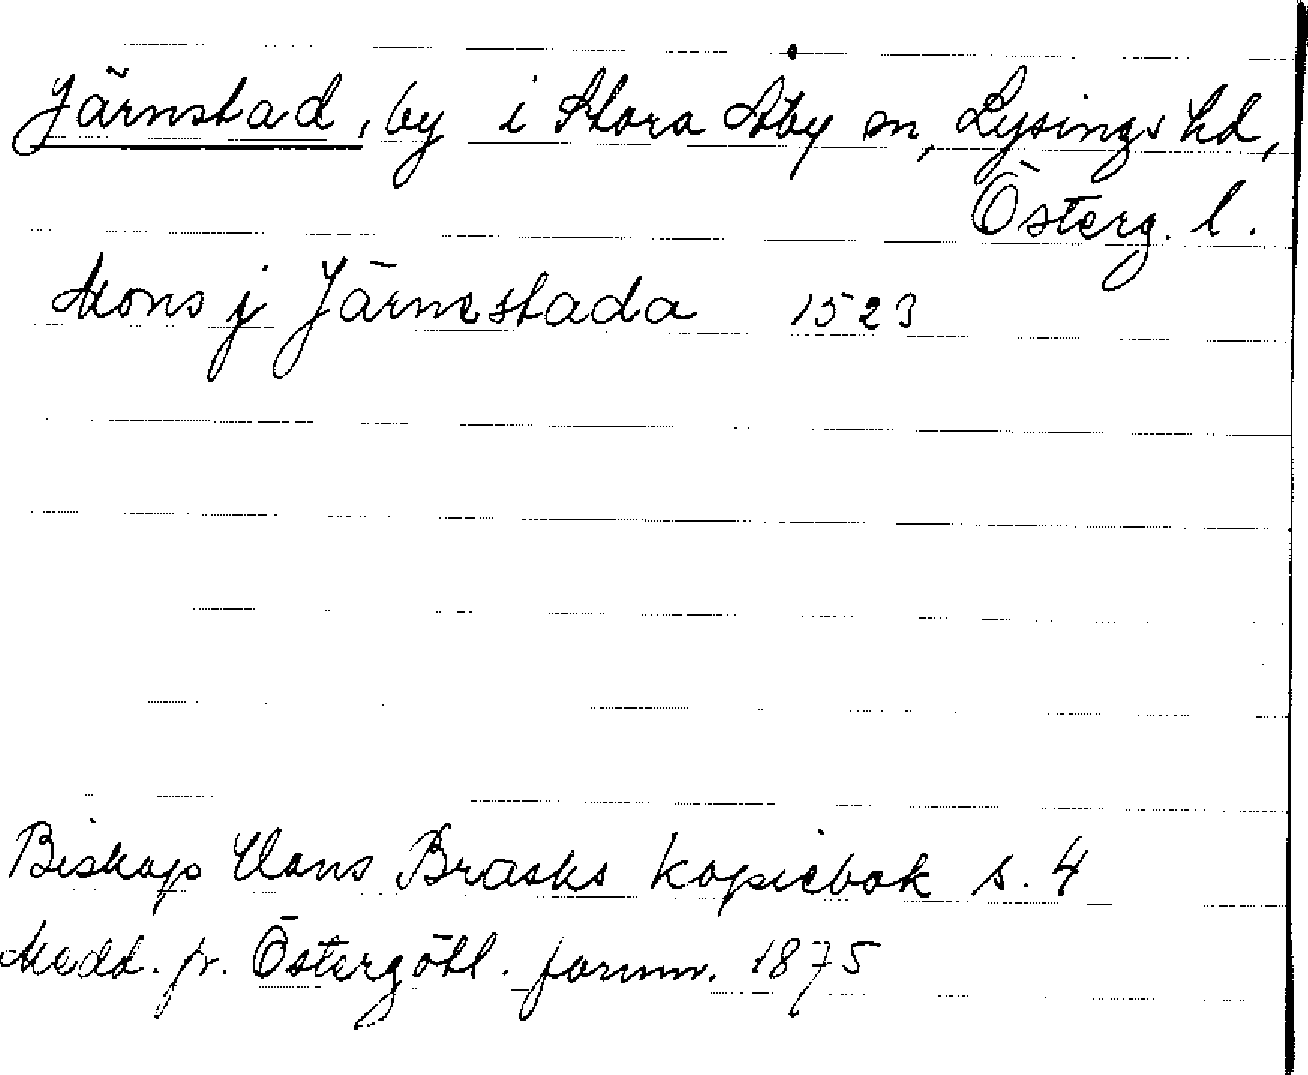 Järnstad, by i Stora Åby sn, Lysings hd,
Österg. l.
Mons j Järnestada 1523
Biskop Hans Brasks kopiebok s. 4
Medd. fr. Östergötl. fornm. 1875